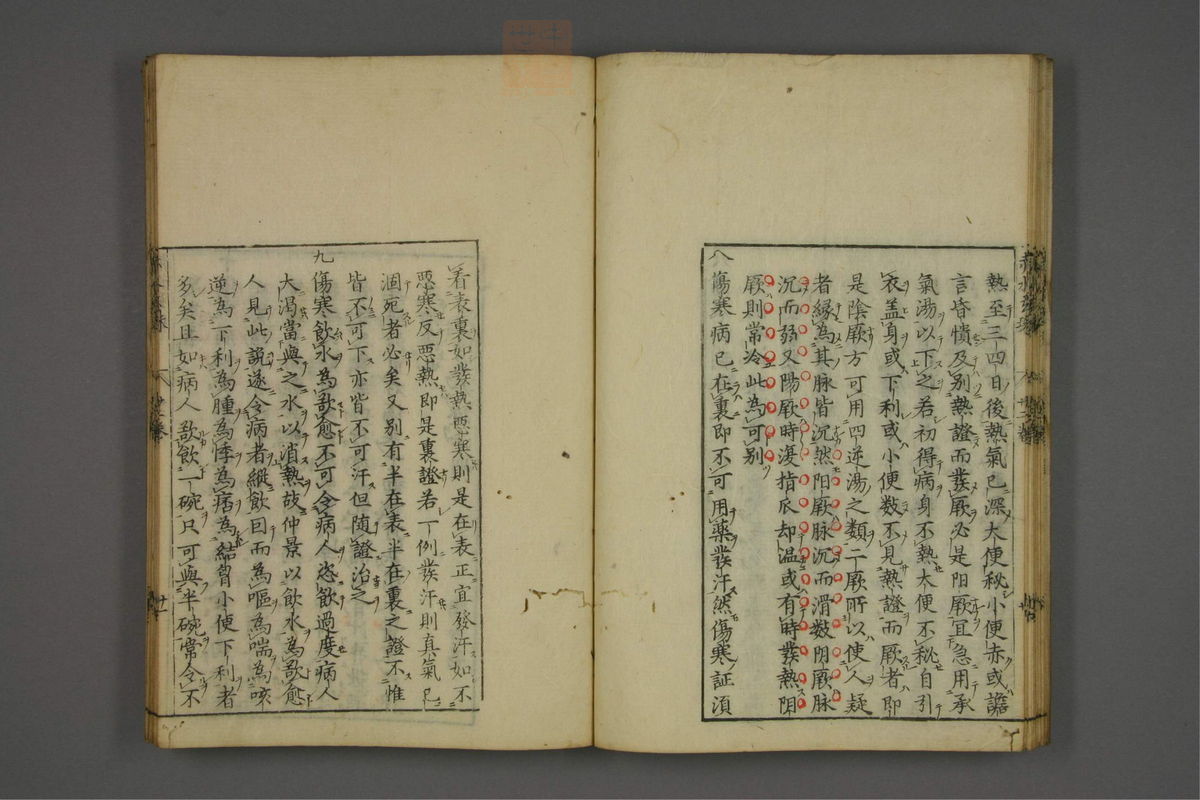 熱至三四日後熱氣已深大便秘小便赤或譫
言昏憒及别熱證而發厥必是阳厥冝急用承
氣湯以下之若初得病身不熱大便不秘自引
衣盖身或下利或小便数不見熱證而厥者即
是陰厥方可用四逆湯之類二厥所以使人疑
者縁為其脉皆沉然阳厥脉沉而滑数阴厥脉
沉而弱又陽厥時復指爪却温或有時發熱阴
厥則常冷此為可别
八傷寒病已在裏即不可用藥發汗然傷寒証湏
看表裏如發熱惡寒則是在表正宜發汗如不
惡寒反惡熱即是裏證若一例發汗則真氣已
涸死者必矣又别有半在表半在裏之證不惟
皆不可下亦皆不可汗但随證治之
九傷寒飲水為欲愈不可令病人恣飲過度病人
大渴當與之水以消熱故仲景以飲水為欲愈
人見此說遂令病者縱飲因而為嘔為喘為咳
逆為下利為腫為悸為痞為結胷小便下利者
多矣且如病人欲飲一碗只可與半碗常令不